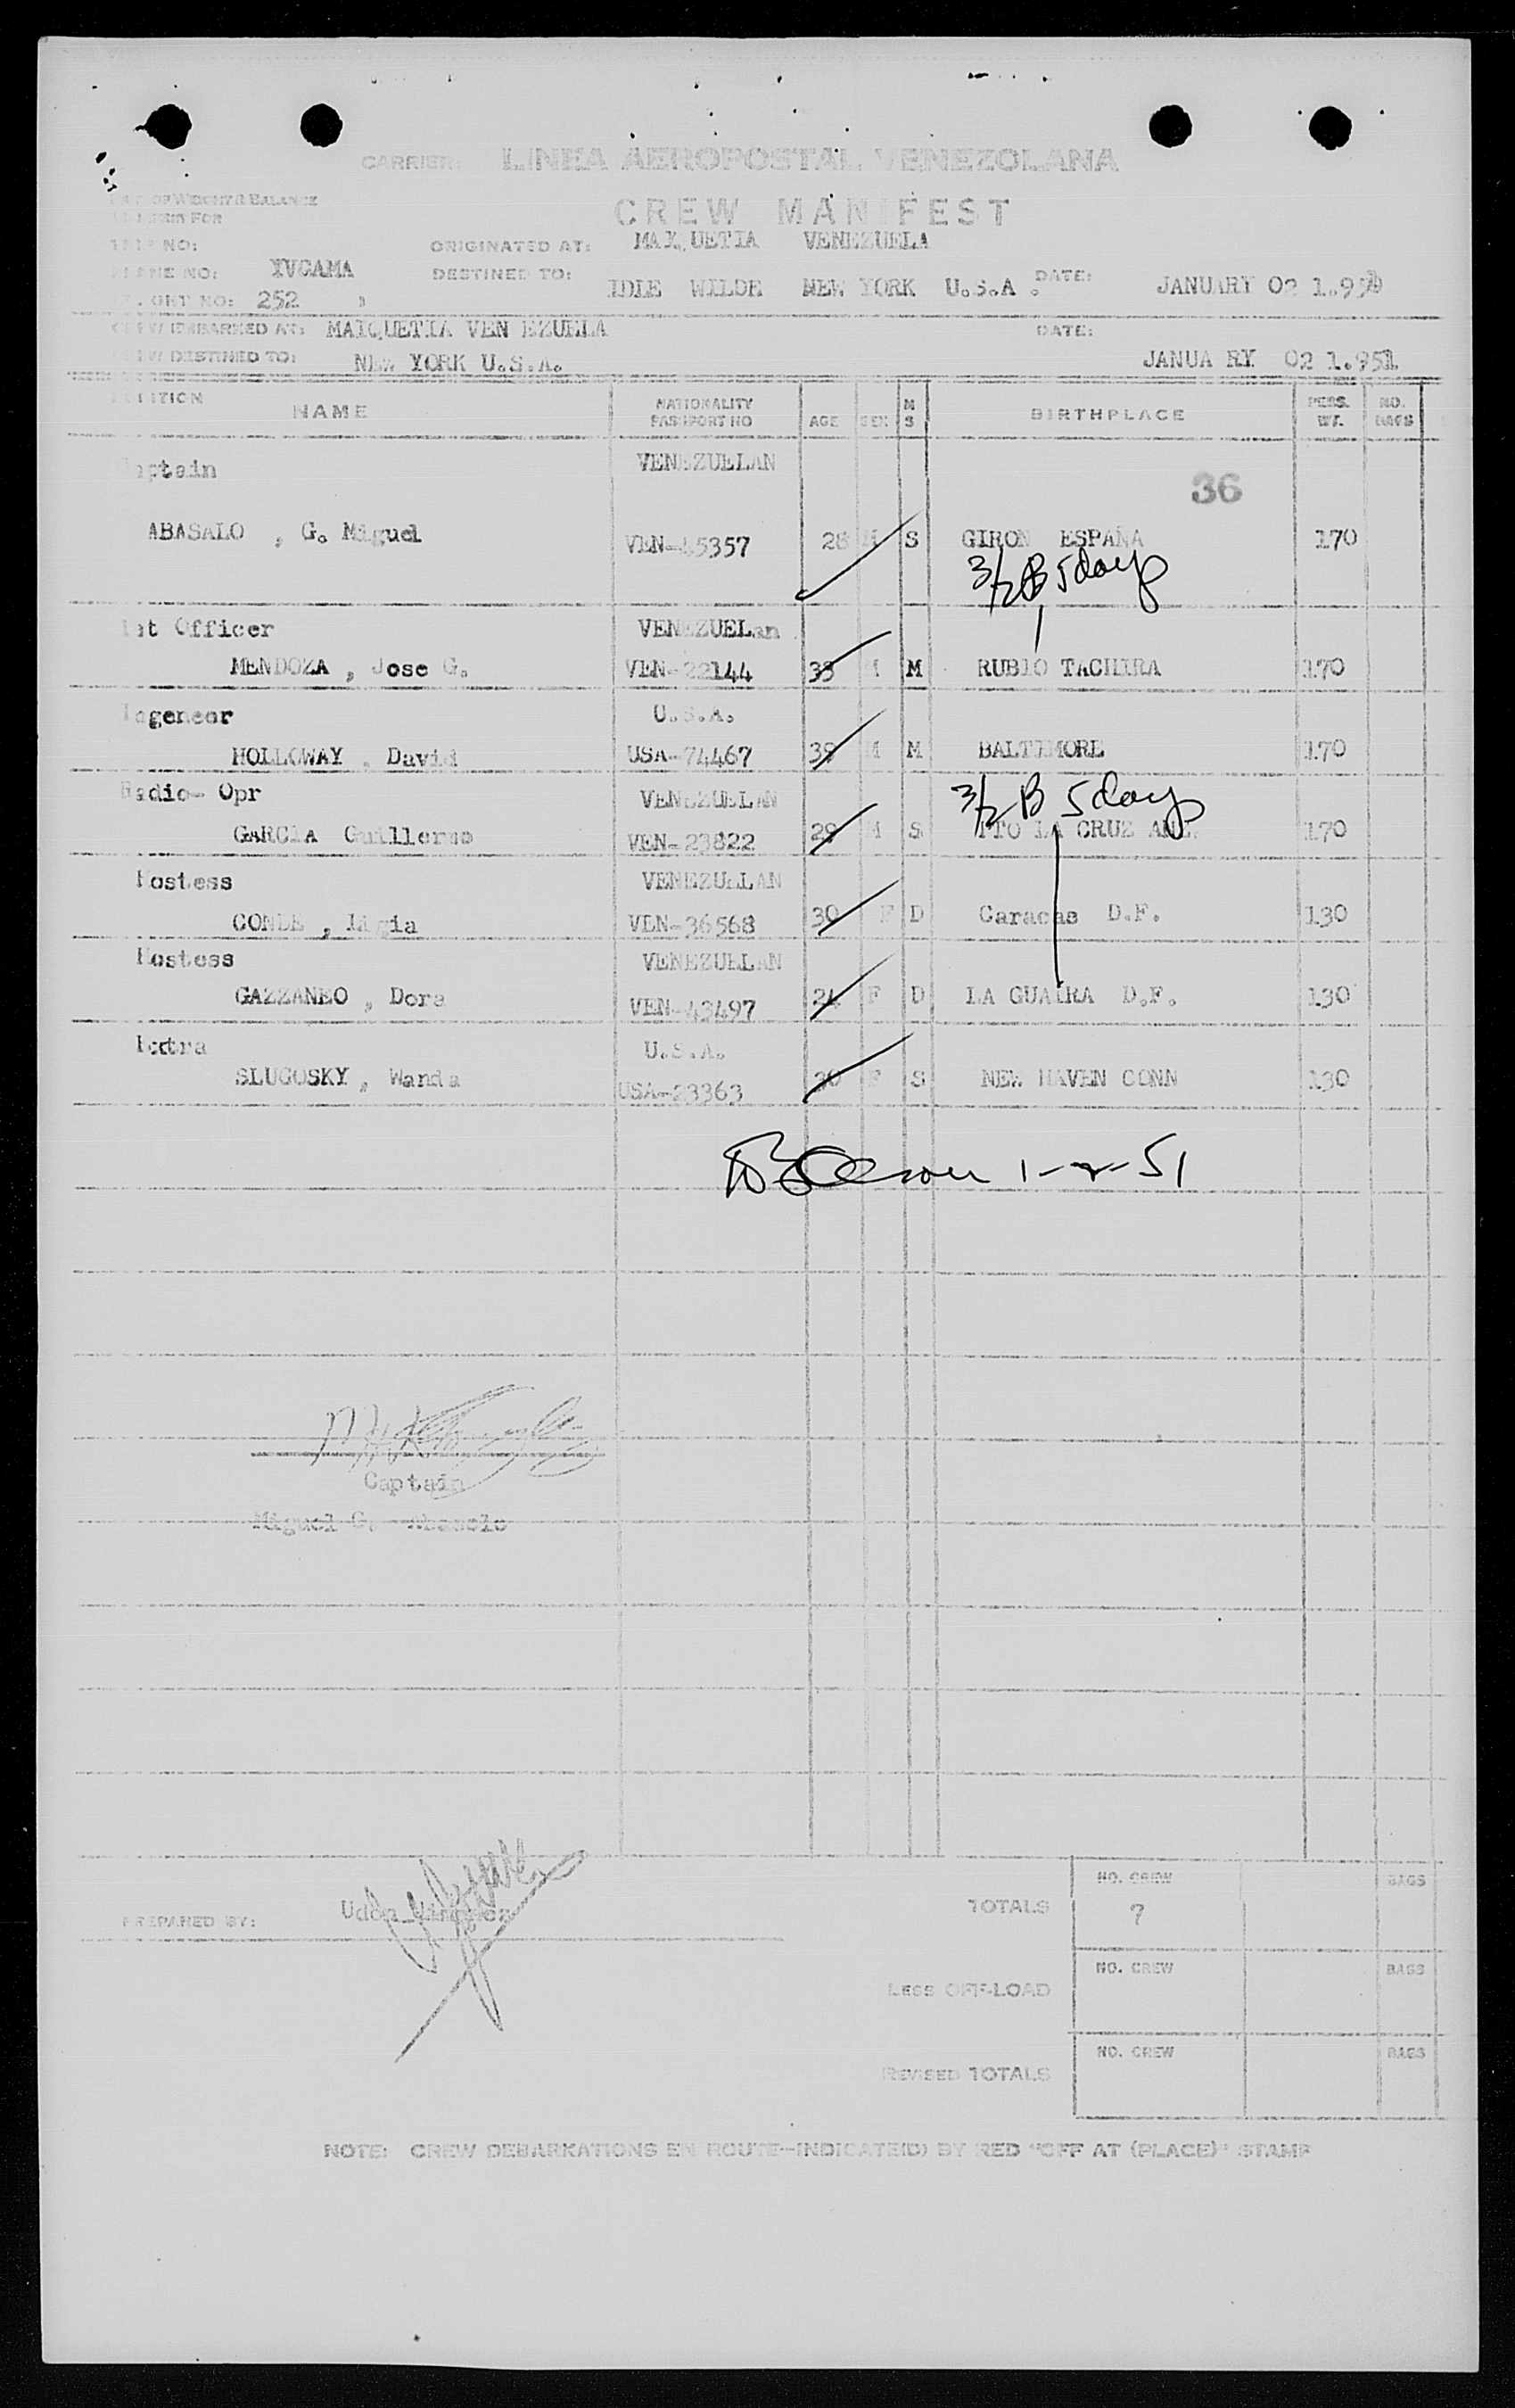 CARRIER: LINEA AEROPOSTAL VENEZOLANA
WEIGHT & BALANCE
FOR
CREW MANIFEST
NO: ORIGINATED AT: MAIQUETIA VENEZUELA
PLANE NO: YVCAMA DESTINED TO: IDLE WILDE NEW YORK U.S.A. DATE: JANUARY 02 1.951
FLIGHT NO: 252
CREW EMBARKED AT: MAIQUETIA VEN EZUELA DATE:
CREW DESTINED TO: NEW YORK U.S.A. JANUA RY 02 1.951
POSITION NAME NATIONALITY PASSPORT NO AGE SEX M S BIRTHPLACE PERS. WT. NO. BAGS
Captain VENEZUELAN
36
ABASALO , G. Miguel VEN-45357 28 M S GIRON ESPAÑA 170
3/2 B 5 days
1st Officer VENEZUELan
MENDOZA , Jose G. VEN-22144 33 M M RUBIO TACHIRA 170
Ingeneer U.S.A.
HOLLOWAY , David USA-74467 38 M M BALTIMORE 170
Radio- Opr VENEZUELAN 3/2 B 5 days
GARCIA Guillermo VEN-23822 29 M S PTO LA CRUZ ANZ. 170
Hostess VENEZUELAN
CONDE , Ligia VEN-36568 30 F D Caracas D.F. 130
Hostess VENEZUELAN
GAZZANEO , Dora VEN-43497 24 F D LA GUAIRA D.F. 130
Extra U.S.A.
SLUGOSKY , Wanda USA-23363 30 F S NEW HAVEN CONN 130
1-2-51
Captain
Miguel G. Abasolo
PREPARED BY:
TOTALS NO. CREW 7 BAGS
LESS OFF-LOAD NO. CREW BAGS
REVISED TOTALS NO. CREW BAGS
NOTE: CREW DEBARKATIONS EN ROUTE-INDICATE(D) BY RED "OFF AT (PLACE)" STAMP